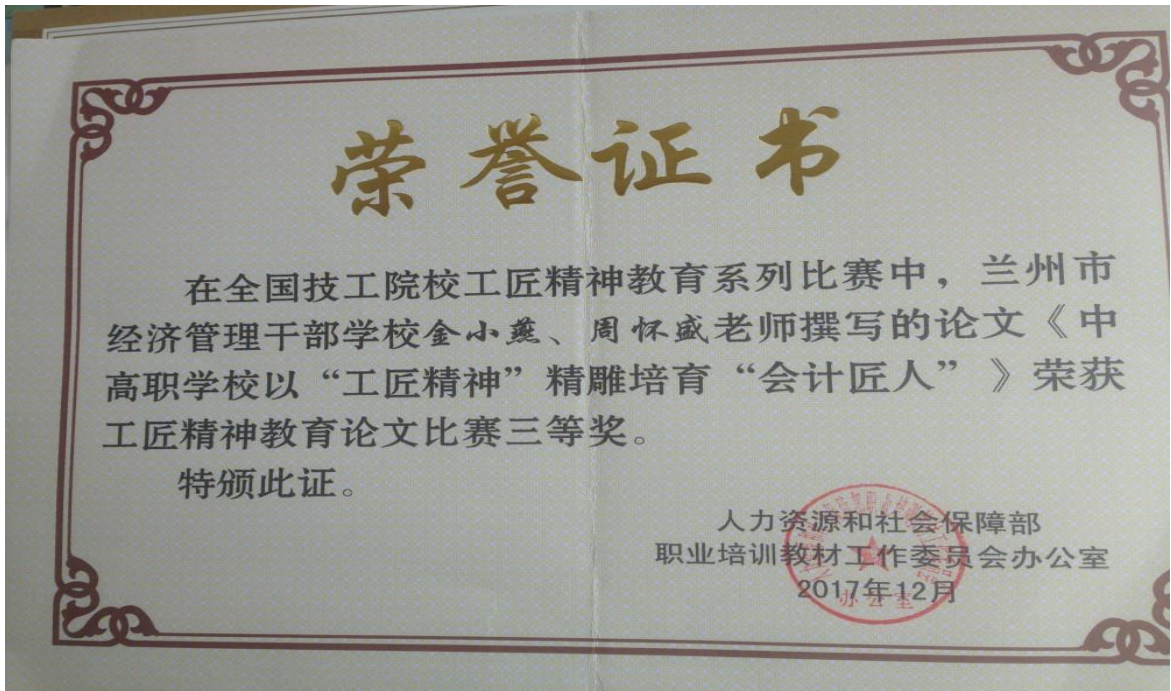 荣誉证书
在全国技工院校工匠精神教育系列比赛中，兰州市
经济管理干部学校金小燕、周怀盛老师撰写的论文《中
高职学校以“工匠精神”精雕培育“会计匠人”》荣获
工匠精神教育论文比赛三等奖。
特颁此证。
人力资源和社会保障部
职业培训教材工作委员会办公室
2017年12月
办公室